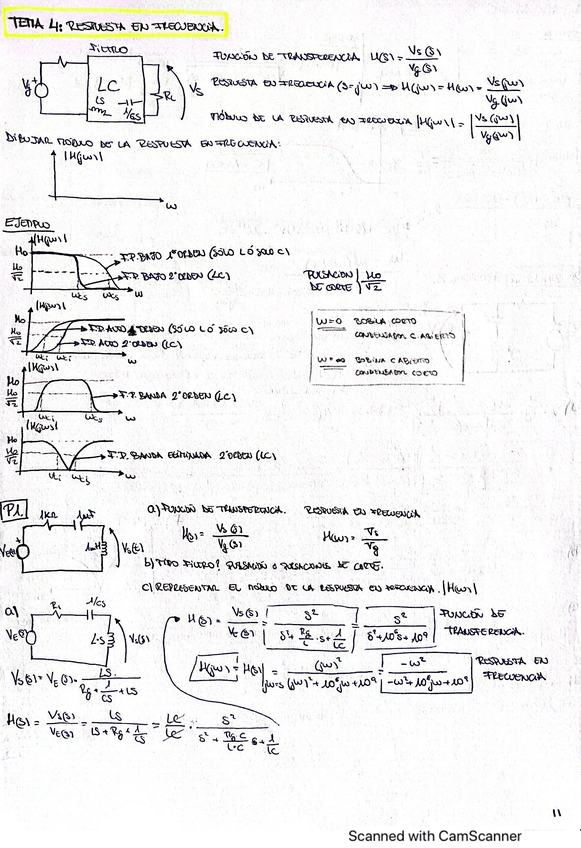 TEMA 4: RESPUESTA EN FRECUENCIA.
FILTRO
Vg
+
LC
LS
1/CS
RL
VS
FUNCIÓN DE TRANSFERENCIA H(S) = VS(S) / Vg(S)
RESPUESTA EN FRECUENCIA (S=jω) ⇒ H(jω) = H(ω) = VS(jω) / Vg(jω)
MÓDULO DE LA RESPUESTA EN FRECUENCIA |H(jω)| = |VS(jω) / Vg(jω)|
DIBUJAR MÓDULO DE LA RESPUESTA EN FRECUENCIA:
|H(jω)|
ω
EJEMPLO
|H(jω)|
H0
H0/√2
F.P. BAJO 1º ORDEN (SÓLO L Ó SÓLO C)
F.P. BAJO 2º ORDEN (LC)
ωcs ωcs ω
PULSACIÓN DE CORTE | H0/√2
|H(jω)|
H0
H0/√2
F.P. ALTO 1º ORDEN (SÓLO L Ó SÓLO C)
F.P. ALTO 2º ORDEN (LC)
ωci ωci ω
ω=0 BOBINA CORTO
CONDENSADOR C.ABIERTO
ω=∞ BOBINA C.ABIERTO
CONDENSADOR CORTO
|H(jω)|
H0
H0/√2
F.P. BANDA 2º ORDEN (LC)
ωci ωcs ω
|H(jω)|
H0
H0/√2
F.P. BANDA ELIMINADA 2º ORDEN (LC)
ωci ωcs ω
P1.
1KΩ 1mF
VE(t)
+
1mH
VS(t)
a) FUNCIÓN DE TRANSFERENCIA. RESPUESTA EN FRECUENCIA
H(S) = VS(S) / Vg(S) H(ω) = VS / Vg
b) TIPO FILTRO? PULSACIÓN O PULSACIONES DE CORTE.
c) REPRESENTAR EL MÓDULO DE LA RESPUESTA EN FRECUENCIA. |H(ω)|
a)
1/CS
VE(S)
L·S
VS(S)
H(S) = VS(S) / VE(S) = S² / (S² + Rg/L · S + 1/LC) = S² / (S² + 10⁶S + 10⁹) FUNCIÓN DE TRANSFERENCIA.
H(jω) = H(S)|S=jω = (jω)² / ((jω)² + 10⁶jω + 10⁹) = -ω² / (-ω² + 10⁶jω + 10⁹) RESPUESTA EN FRECUENCIA
VS(S) = VE(S) · LS / (Rg + 1/CS + LS)
H(S) = VS(S) / VE(S) = LS / (LS + Rg + 1/CS) = LC / LC · S² / (S² + RgC/L·C S + 1/LC)
11
Scanned with CamScanner